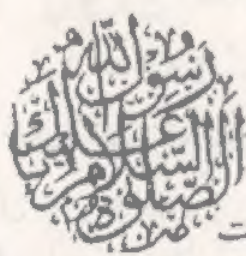 الصلوة والسلام عليك يا رسول الله